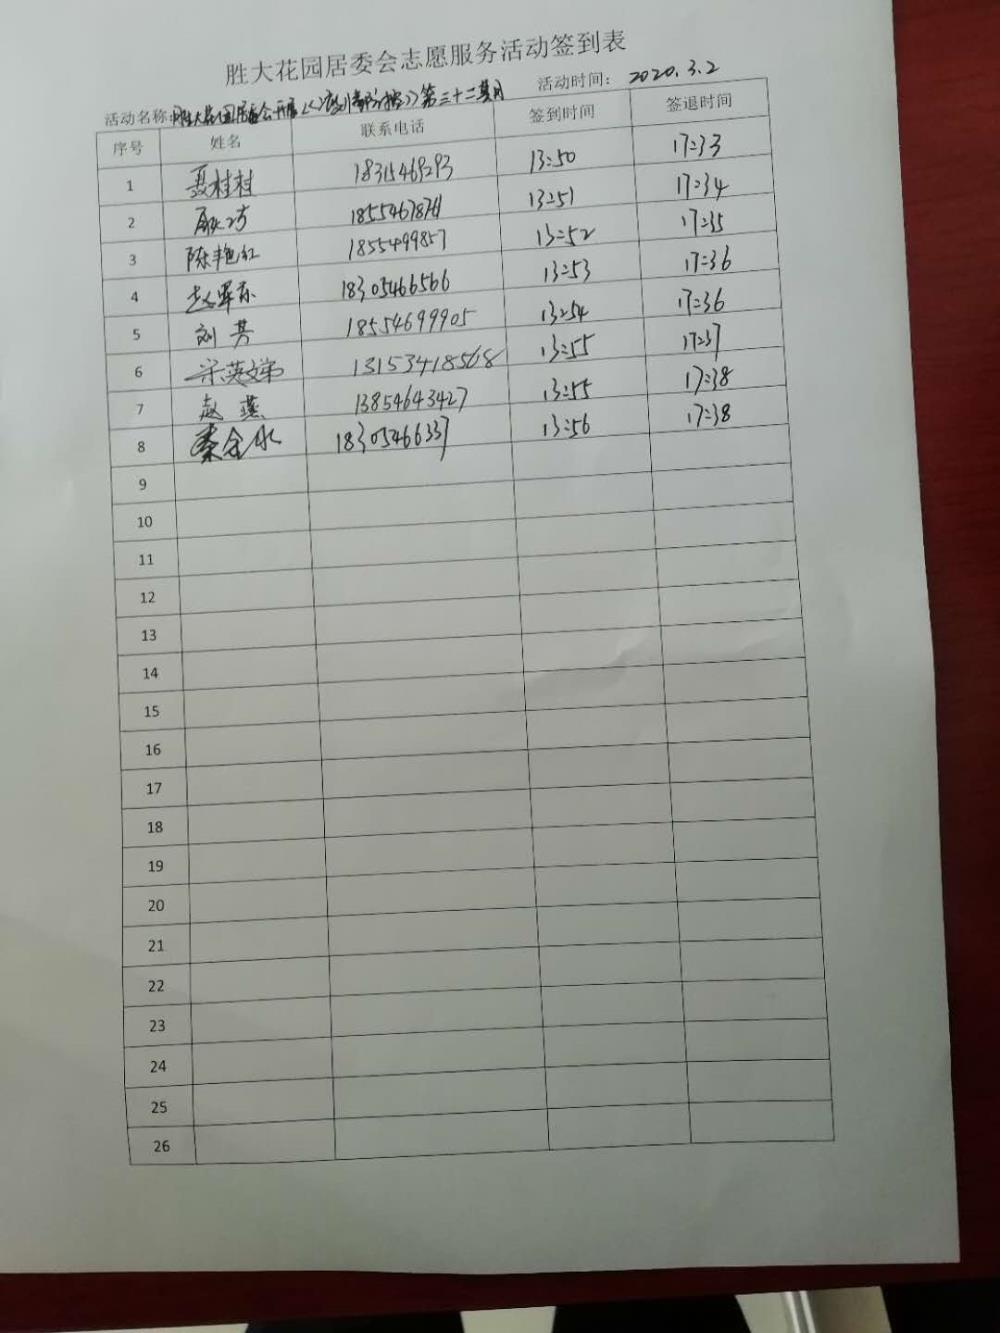 胜大花园居委会志愿服务活动签到表
活动名称:胜大花园居委会开展 第三十二期 活动时间: 2020.3.2
序号 姓名 联系电话 签到时间 签退时间
1 聂桂村 18315469293 13:50 17:33
2 13:51 17:34
3 陈艳红 1855499857 13:52 17:35
4 赵军东 18305466566 13:53 17:36
5 刘芳 18554699905 13:54 17:36
6 13153418568 13:55 17:37
7 赵燕 13854643427 13:55 17:38
8 秦金水 18305466337 13:56 17:38
9
10
11
12
13
14
15
16
17
18
19
20
21
22
23
24
25
26